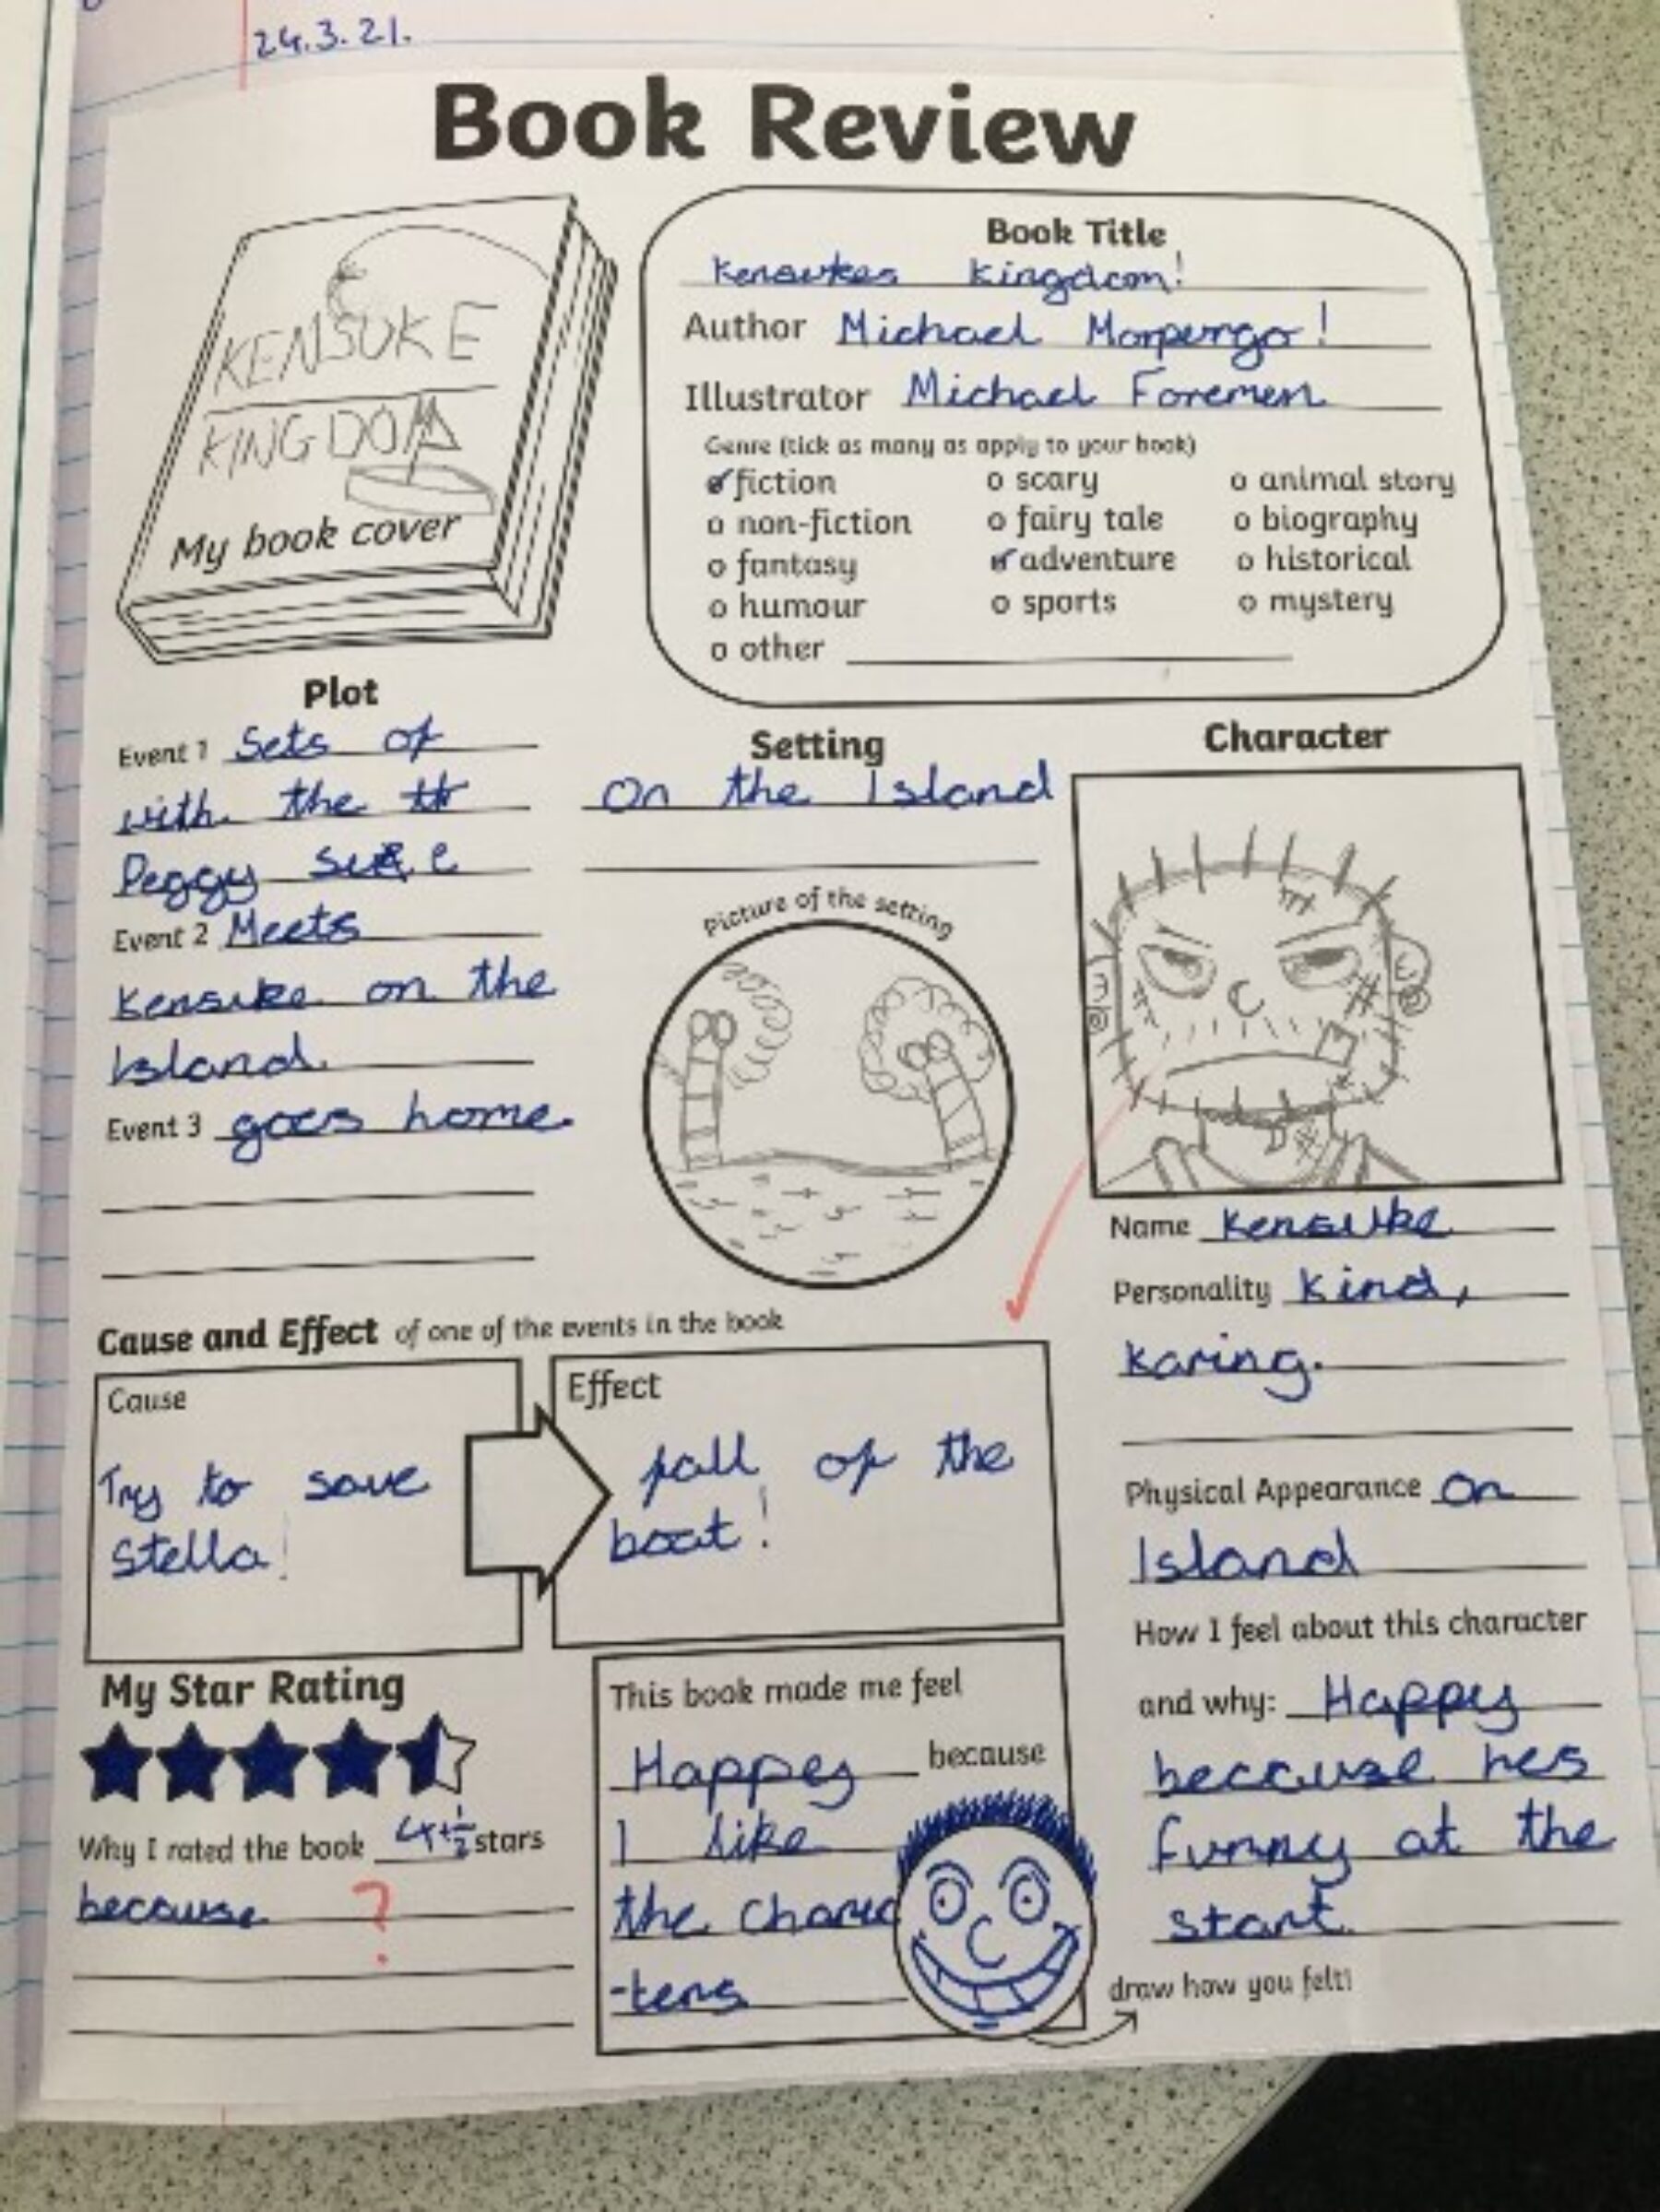 24.3.21.
Book Review
KENSUKE
KINGDOM
My book cover
Book Title
Kensukes Kingdom!
Author Michael Morpurgo!
Illustrator Michael Foremen
Genre (tick as many as apply to your book)
fiction
o scary
o animal story
o non-fiction
o fairy tale
o biography
o fantasy
adventure
o historical
o humour
o sports
o mystery
o other
Plot
Event 1 Sets of
with the
Peggy sue
Event 2 Meets
Kensuke on the
Island.
Event 3 goes home.
Setting
on the Island
Picture of the setting
Character
Name Kensuke
Personality Kind,
Karing.
Physical Appearance on
Island
How I feel about this character
and why: Happy
beccause hes
funny at the
start.
Cause and Effect of one of the events in the book
Cause
Try to save
Stella!
Effect
fall of the
boat!
My Star Rating
Why I rated the book 4+½ stars
because ?
This book made me feel
Happy because
I like
the charac
-ters
draw how you felt!